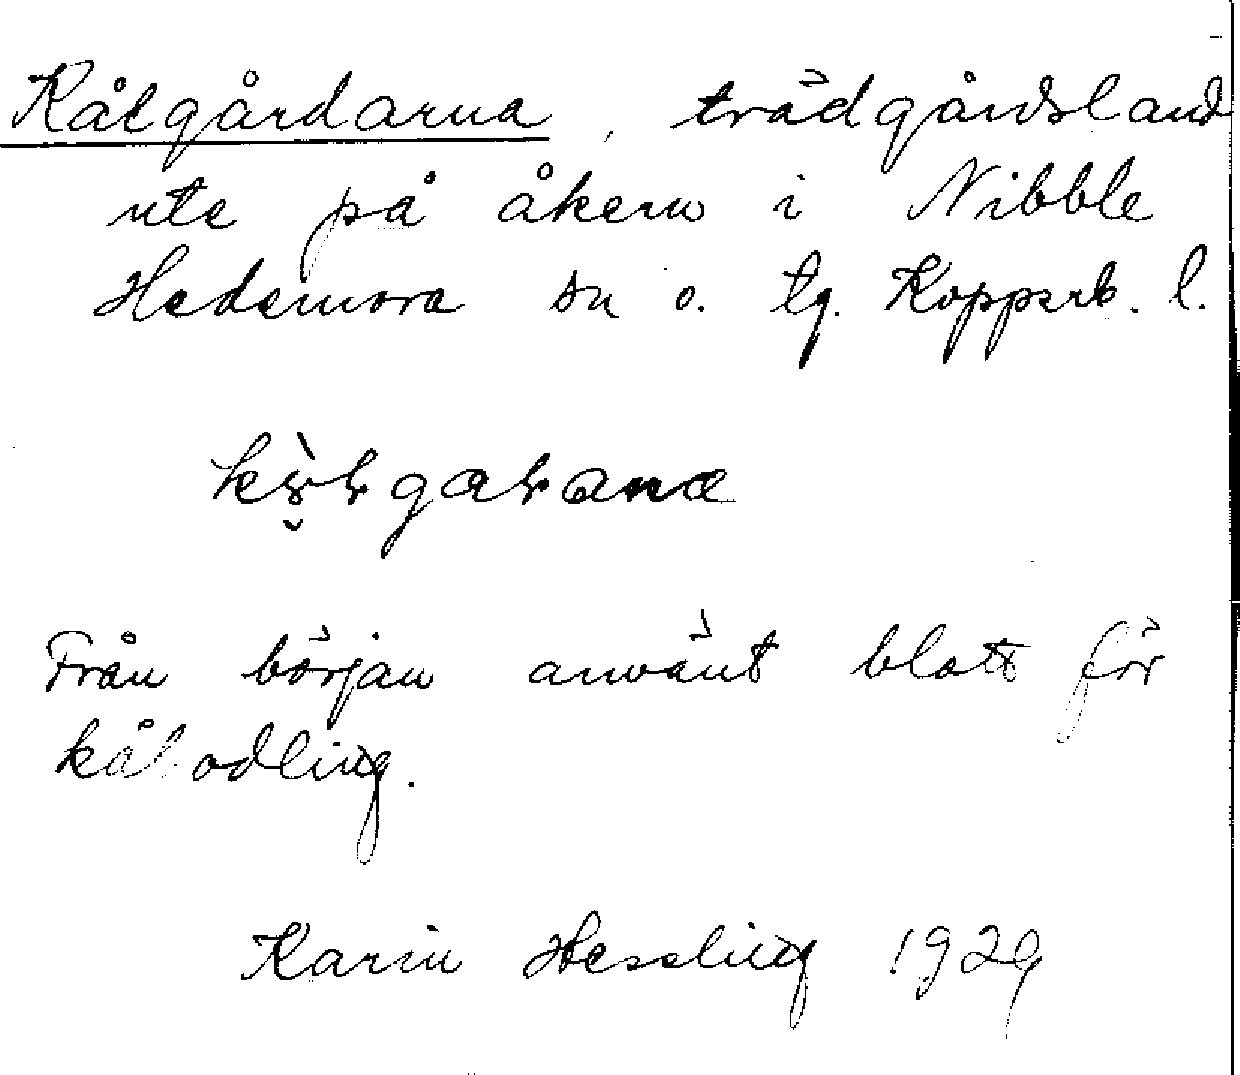 Kålgårdarna, trädgårdsland
ute på åkern i Nibble
Hedemora sn o. tg. Kopperb. l.
Från början använt blott för
kålodling.
Karin Hessling 1929